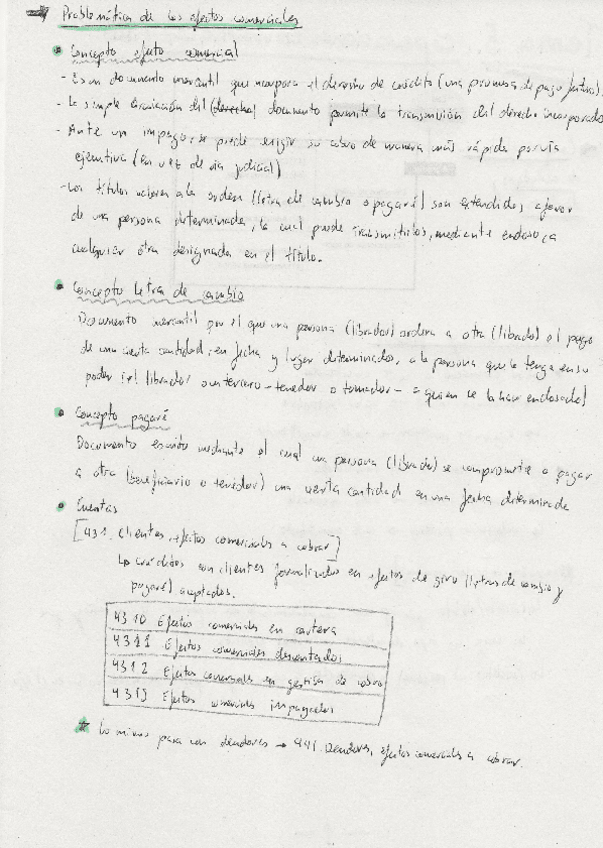 Problemática de los efectos comerciales
• Concepto efecto comercial
- Es un documento mercantil que incorpora el derecho de crédito (una promesa de pago futuro).
- La simple circulación del (derecho) documento permite la transmisión del derecho incorporado
- Ante un impago, se puede exigir su cobro de manera más rápida por vía
ejecutiva (en vez de vía judicial)
- Los títulos valores a la orden (letra de cambio o pagaré) son extendidos a favor
de una persona determinada, la cual puede transmitirlos, mediante endoso, a
cualquier otra designada en el título.
• Concepto letra de cambio
Documento mercantil por el que una persona (librador) ordena a otra (librado) el pago
de una cierta cantidad, en fecha y lugar determinados, a la persona que la tenga en su
poder (el librador o un tercero - tenedor o tomador - a quien se la haya endosado)
• Concepto pagaré
Documento escrito mediante el cual una persona (librado) se compromete a pagar
a otra (beneficiario o tenedor) una cierta cantidad en una fecha determinada
• Cuentas
[431. Clientes, efectos comerciales a cobrar]
Los créditos con clientes formalizados en efectos de giro (letras de cambio y
pagaré) aceptados.
4310 Efectos comerciales en cartera
4311 Efectos comerciales descontados
4312 Efectos comerciales en gestión de cobro
4315 Efectos comerciales impagados
* Lo mismo para con deudores → 441. Deudores, efectos comerciales a cobrar.